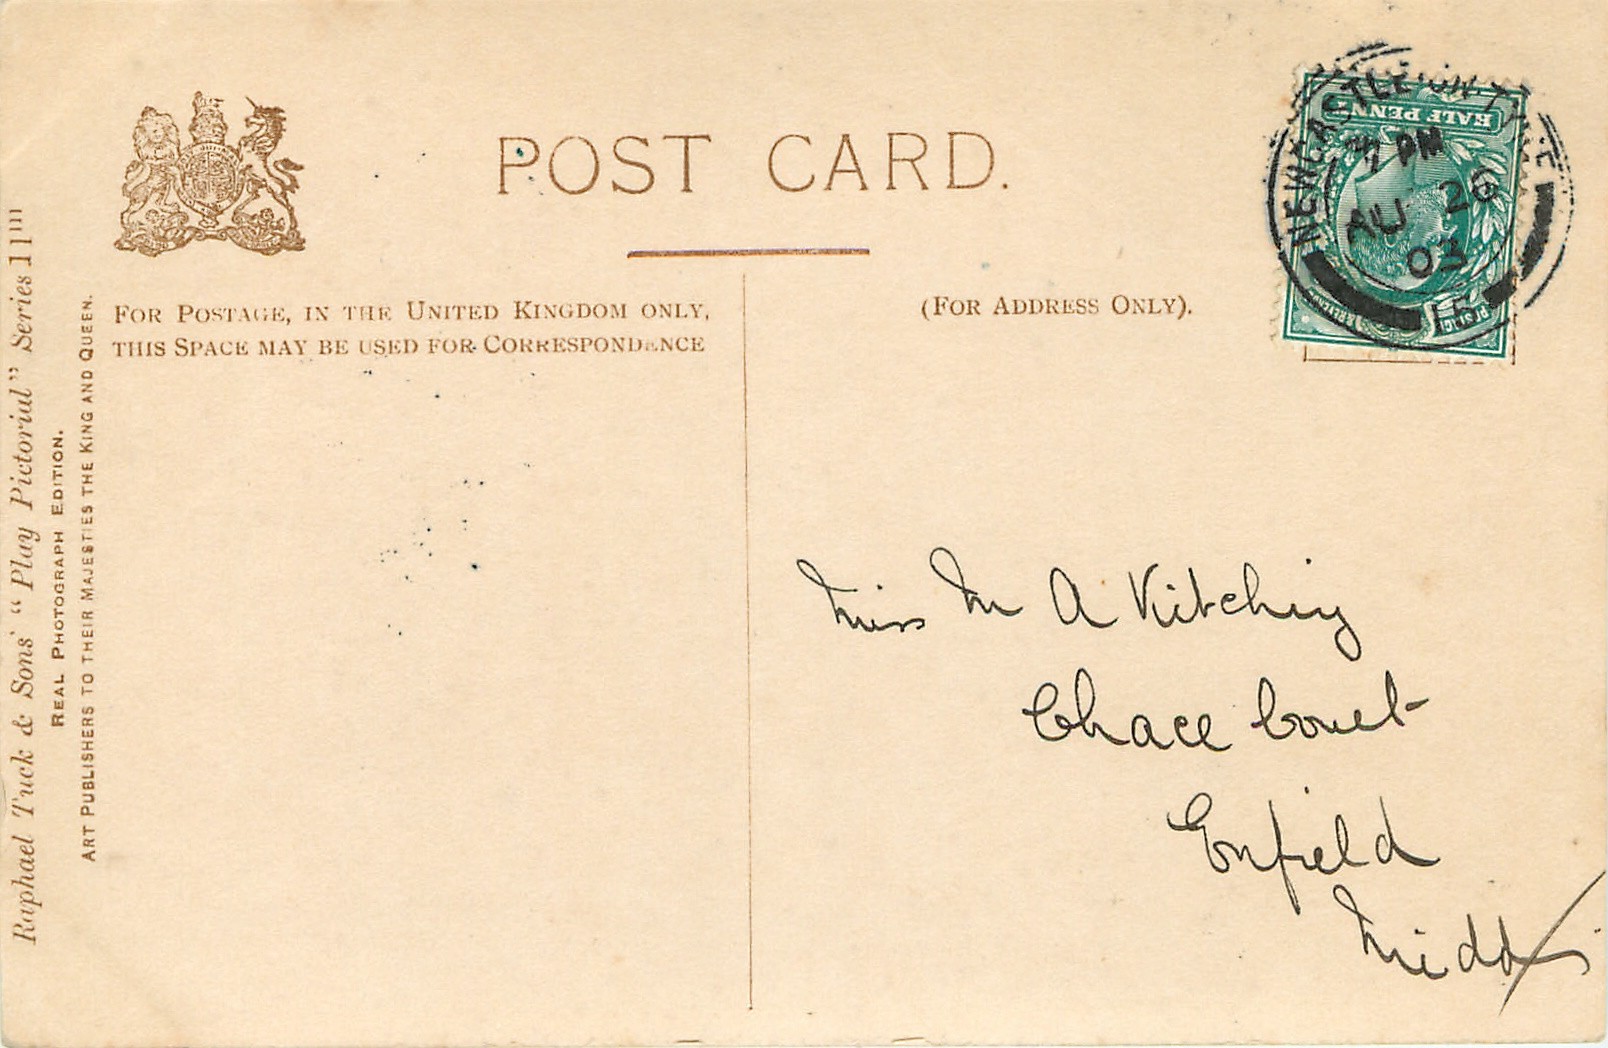 POST CARD.
FOR POSTAGE, IN THE UNITED KINGDOM ONLY,
THIS SPACE MAY BE USED FOR CORRESPONDENCE
(FOR ADDRESS ONLY).
Raphael Tuck & Sons' "Play Pictorial" Series 11'''
REAL PHOTOGRAPH EDITION.
ART PUBLISHERS TO THEIR MAJESTIES THE KING AND QUEEN.
HALF PENNY
POSTAGE
NEWCASTLE ON TYNE
7 PM
AU 26
03
Miss M A Kitching
Chace Court
Enfield
Middx